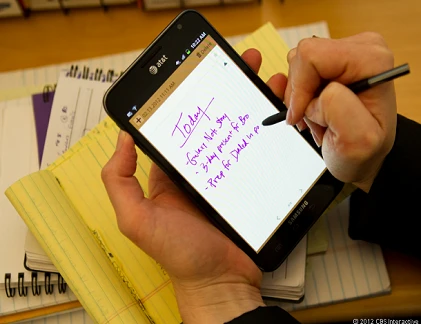 at&t
10:22 AM
Today
Galaxy Note story
- 3-day present for Bro
- Prep for Dialed in po
© 2012 CBS Interactive